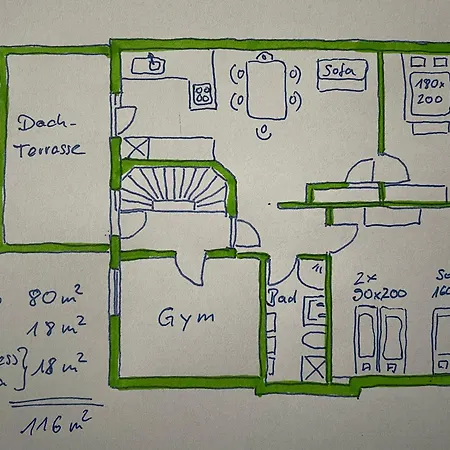 Dach-
Terrasse
Sofa
180x
200
Gym
Bad
2x
90x200
80 m²
18 m²
18 m²
116 m²